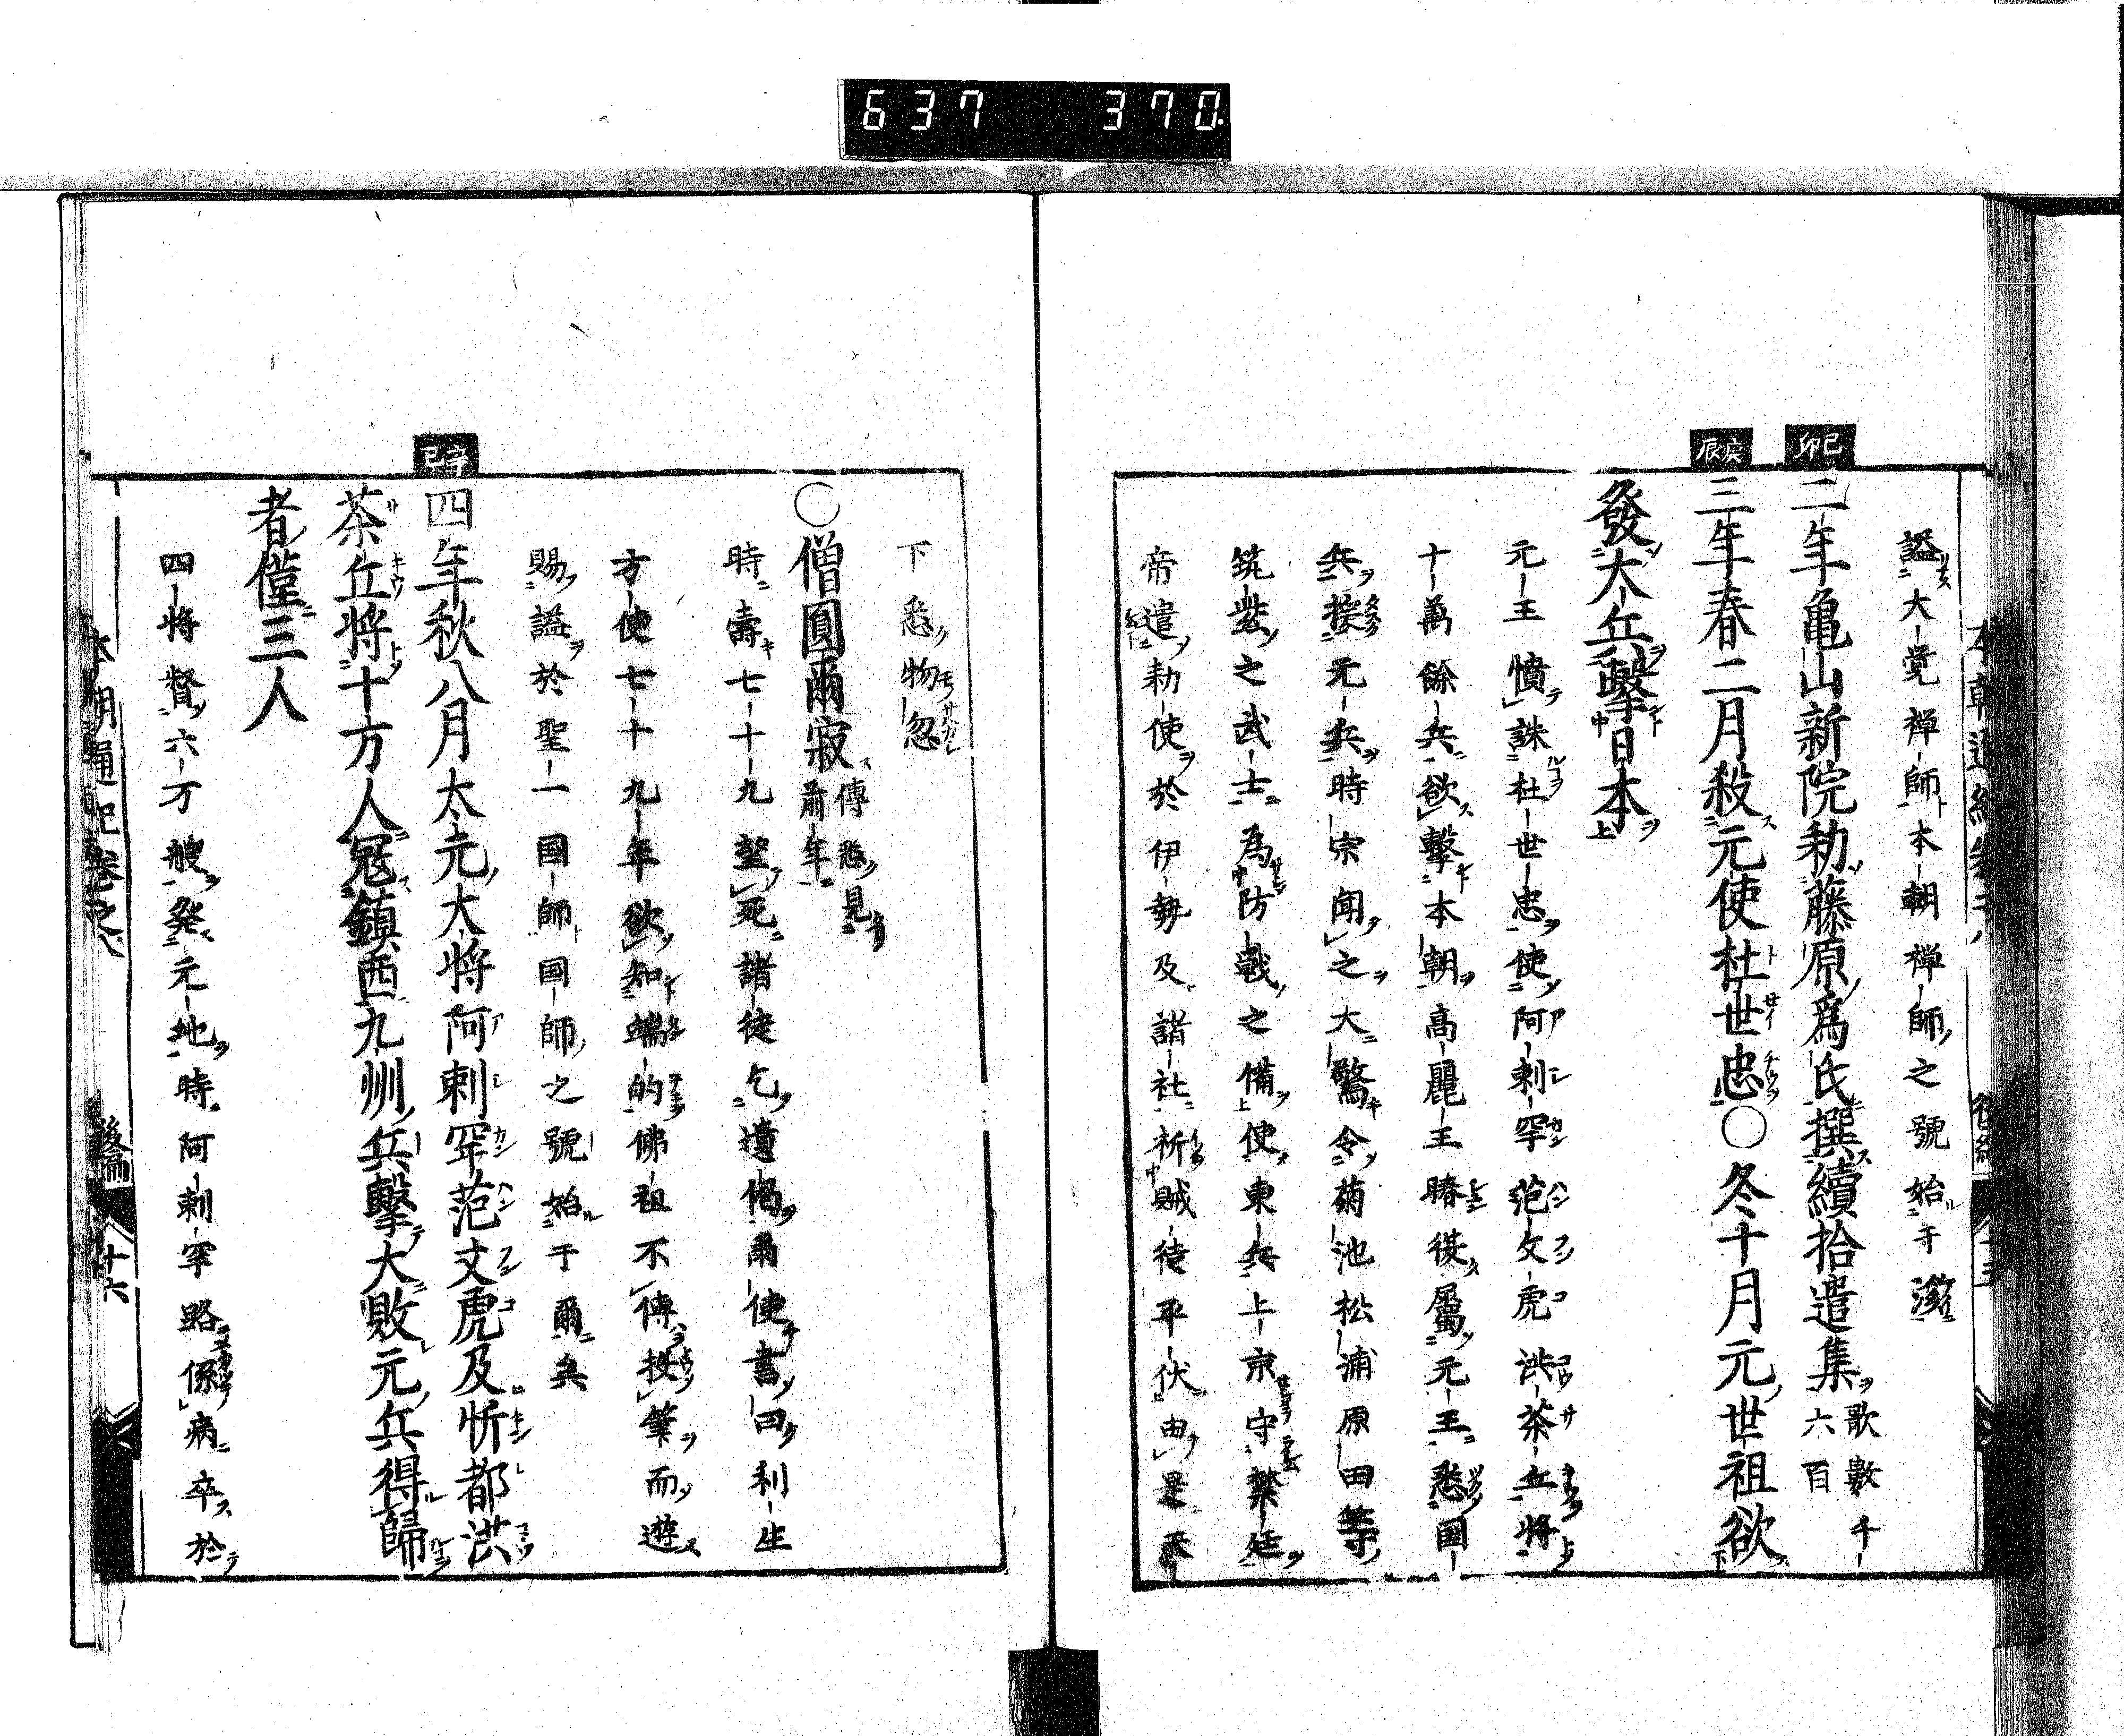 637 370
諡大覚禅師本朝禅師之號始于
己卯
二年亀山新院勅藤原爲氏撰續拾遺集歌數千六百
庚辰
三年春二月殺元使杜世忠〇冬十月元世祖欲
發大兵擊日本
元王憤誅杜世忠使阿剌罕范文虎洪茶丘將
十萬餘兵欲擊本朝高麗王䞉從屬元王悉国
兵接元兵時宗聞之大驚令菊池松浦原田等
筑紫之武士為防戰之備使東兵上京守禁廷
帝遣勅使於伊勢及諸社祈賊徒平伏由是天
下悉物忽
〇僧圓爾寂傳悉見前年
時壽七十九望死諸徒乞遺偈爾使書曰利生
方便七十九年欲知端的佛祖不傳投筆而遊
賜諡於聖一国師国師之號始于爾矣
辛巳
四年秋八月太元大将阿剌罕范文虎及忻都洪
茶丘将十万人冦鎮西九州兵擊大敗元兵得歸
者僅三人
四将督六万艘発元地時阿剌罕路係病卒於
本朝通紀卷之八 後編 十六